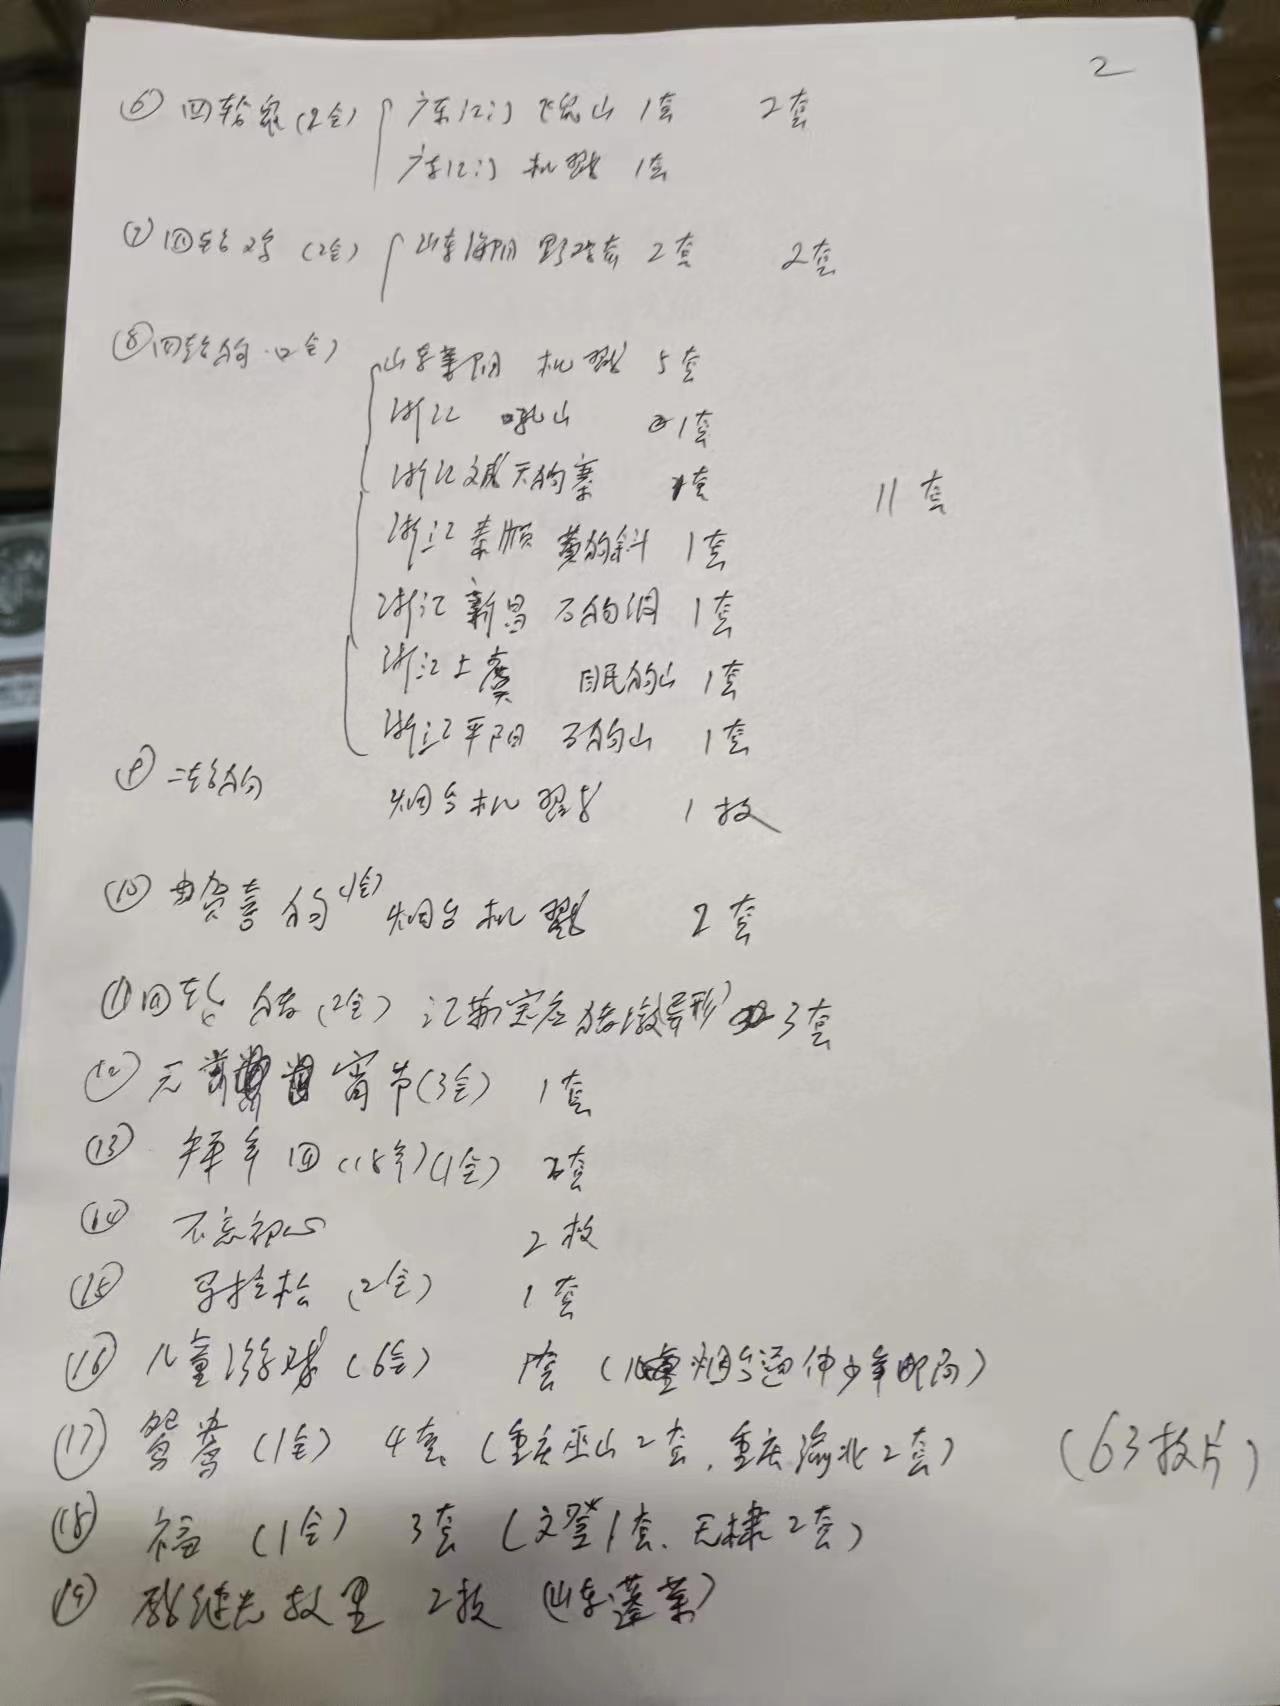 2
⑥ 四轮鼠(2全) 广东江门 飞鼠山 1套 2套
广东江门 机戳 1套
⑦ 四轮鸡 (2全) 山东海阳 野鸡 2套 2套
⑧ 四轮狗 (2全) 山东莱阳 机戳 5套
浙江 吼山 1套
浙江文成 天狗寨 1套 11套
浙江泰顺 黄狗斜 1套
浙江新昌 石狗洞 1套
浙江上虞 眠狗山 1套
浙江平阳 石狗山 1套
⑨ 二轮狗 烟台机戳 1枚
⑩ 贺喜狗(1全) 烟台机戳 2套
⑪ 四轮猪(2全) 江苏宝应 猪 (异形) 3套
⑫ 元宵节(3全) 1套
⑬ 拜年四(18年)(1全) 套
⑭ 不忘初心 2枚
⑮ 马拉松(2全) 1套
⑯ 儿童游戏(6全) 1套 (烟台通伸少年邮局)
⑰ 鸳鸯(1全) 4套 (重庆巫山2套、重庆渝北2套) (63枚片)
⑱ 福(1全) 3套 (文登1套、无棣2套)
⑲ 戚继光故里 2枚 (山东蓬莱)